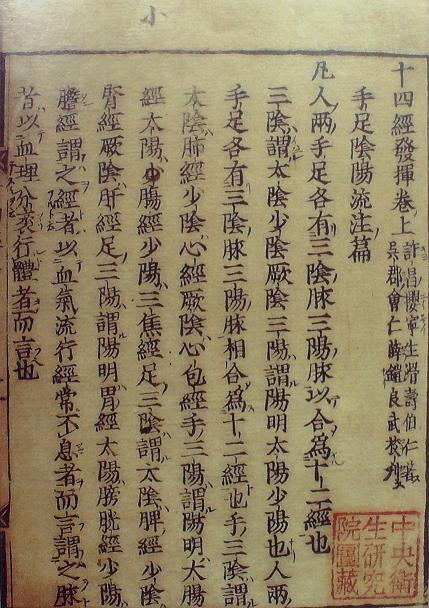 十四經發揮卷上
許昌櫻寧生滑壽伯仁著
吳郡會仁薛鎧良武校刊
手足陰陽流注篇
凡人兩手足各有三陰脉三陽脉以合為十二經也
三陰謂太陰少陰厥陰三陽謂陽明太陽少陽也人兩
手足各有三陰脉三陽脉相合為十二經也手三陰謂
太陰肺經少陰心經厥陰心包經手三陽謂陽明大腸
經太陽小腸經少陽三焦經足三陰謂太陰脾經少陰
腎經厥陰肝經足三陽謂陽明胃經太陽膀胱經少陽
膽經謂之經者以血氣流行經常不息者而言謂之脉
者以血理分衺行體者而言也
中央衛
生研究
院圖藏